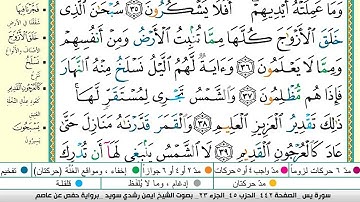 وَمَا عَمِلَتْهُ أَيْدِيهِمْ ۖ أَفَلَا يَشْكُرُونَ ٣٥ سُبْحَٰنَ ٱلَّذِى
خَلَقَ ٱلْأَزْوَٰجَ كُلَّهَا مِمَّا تُنۢبِتُ ٱلْأَرْضُ وَمِنْ أَنفُسِهِمْ
وَمِمَّا لَا يَعْلَمُونَ ٣٦ وَءَايَةٌ لَّهُمُ ٱلَّيْلُ نَسْلَخُ مِنْهُ ٱلنَّهَارَ
فَإِذَا هُم مُّظْلِمُونَ ٣٧ وَٱلشَّمْسُ تَجْرِى لِمُسْتَقَرٍّ لَّهَا ۚ
ذَٰلِكَ تَقْدِيرُ ٱلْعَزِيزِ ٱلْعَلِيمِ ٣٨ وَٱلْقَمَرَ قَدَّرْنَٰهُ مَنَازِلَ حَتَّىٰ
عَادَ كَٱلْعُرْجُونِ ٱلْقَدِيمِ ٣٩ لَا ٱلشَّمْسُ يَنۢبَغِى لَهَآ أَن تُدْرِكَ
خَلَقَ الْأَزْوَاجَ
نَسْلَخُ
كَالْعُرْجُونِ الْقَدِيمِ
يَسْبَحُونَ
مدّ ٦ حركات لزوماً
مدّ ٢ أو ٤ أو ٦ جوازاً
إخفاء، ومواقع الغُنَّة (حركتان)
تفخيم
مدّ حركتان
إدغام، وما لا يُلفَظ
قلقلة
سورة يس الصفحة ٤٤٢ الحزب ٤٥ الجزء ٢٣ بصوت الشيخ أيمن رشدي سويد برواية حفص عن عاصم